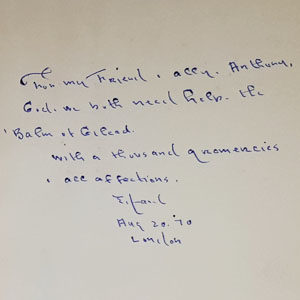 For my Friend & ally, Anthony,
God. we both need help. the
Balm of Gilead.
with a thousand gramercies
& all affections.
Aug 20. 70
London